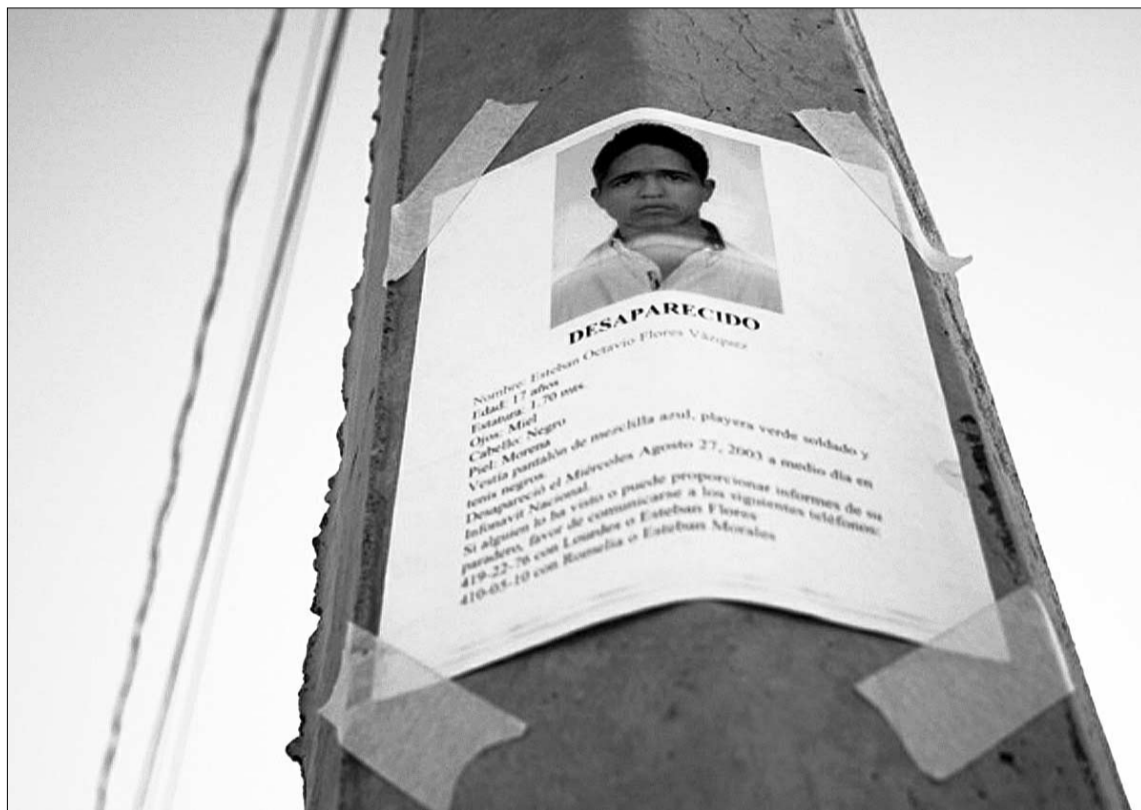 DESAPARECIDO
Nombre: Esteban Octavio Flores Vázquez
Edad: 17 años
Estatura: 1.70 mts.
Ojos: Miel
Cabello: Negro
Piel: Morena
Vestía pantalón de mezclilla azul, playera verde soldado y
tenis negros.
Desapareció el Miércoles Agosto 27, 2003 a medio día en
Infonavit Nacional.
Si alguien lo ha visto o puede proporcionar informes de su
paradero, favor de comunicarse a los siguientes teléfonos:
419-22-76 con Lourdes o Esteban Flores
410-05-10 con Romelia o Esteban Morales